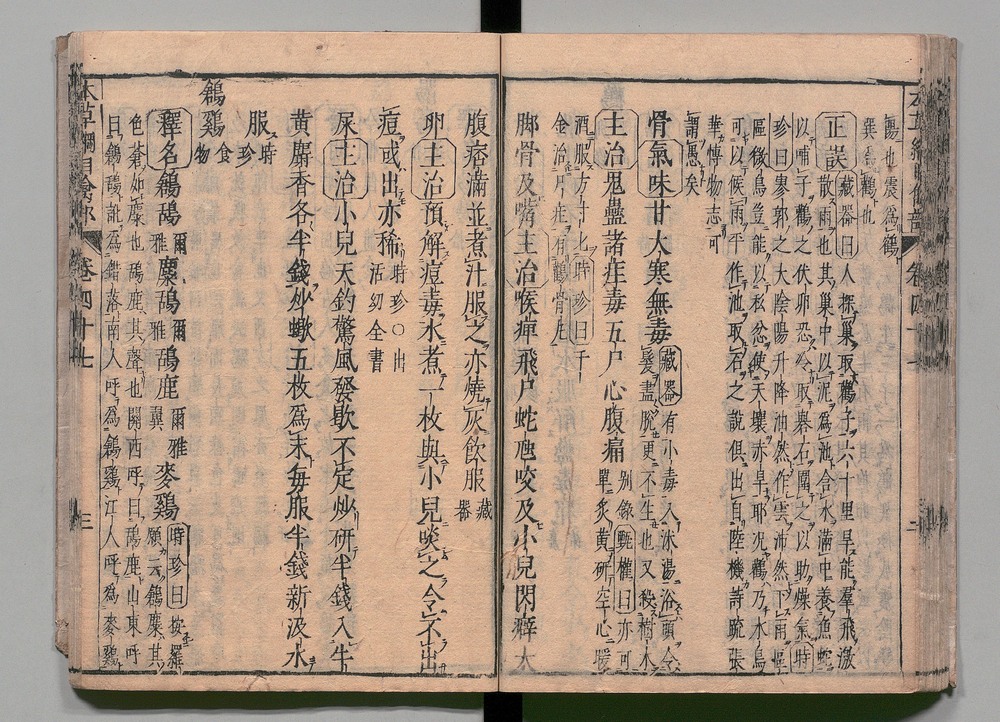 鸛也震為鶴
巽為鸛也
正誤 藏器曰人探巢取鸛子六十里旱能羣飛激
散雨也其巢中以泥為池含水滿中養魚蛇
以哺子鸛之伏卵恐冷取礜石圍之以助燥氣時
珍曰寥郭之大陰陽升降油然作雲沛然下雨
區後鳥豈能以私忿使天壤赤旱耶况鸛乃水鳥
可以候雨乎作池取石之說俱出自陸機詩疏張
華博物志可
謂愚矣
骨氣味甘大寒無毒 藏器有小毒入沐湯浴頭令
髮盡脫更不生也又殺樹木
主治鬼蠱諸疰毒五尸心腹痛 別錄甄權曰亦可
單炙黄研空心暖
酒服方寸匕時珍曰千
金治尸疰有鸛骨丸
脚骨及嘴主治喉痺飛尸蛇虺咬及小兒閃癖大
腹痞滿並煮汁服之亦燒灰飲服 藏
器
卵主治預解痘毒水煮一枚與小兒啖之令不出
痘或出亦稀 時珍○出
活幼全書
屎主治小兒天釣驚風發歇不定炒研半錢入牛
黄麝香各半錢炒蠍五枚為末毎服半錢新汲水
服 時
珍
鶬鷄 食
物
釋名鶬鴰 爾
雅 麋鴰 爾
雅 鴰鹿 爾雅
翼 麥鷄 時珍曰按羅
願云鶬麋其
色蒼如麋也鴰鹿其聲也関西呼曰鴰鹿山東呼
曰鶬鴰訛為錯落南人呼為鶬鷄江人呼為麥鷄
本草綱目禽部
卷四十七
三